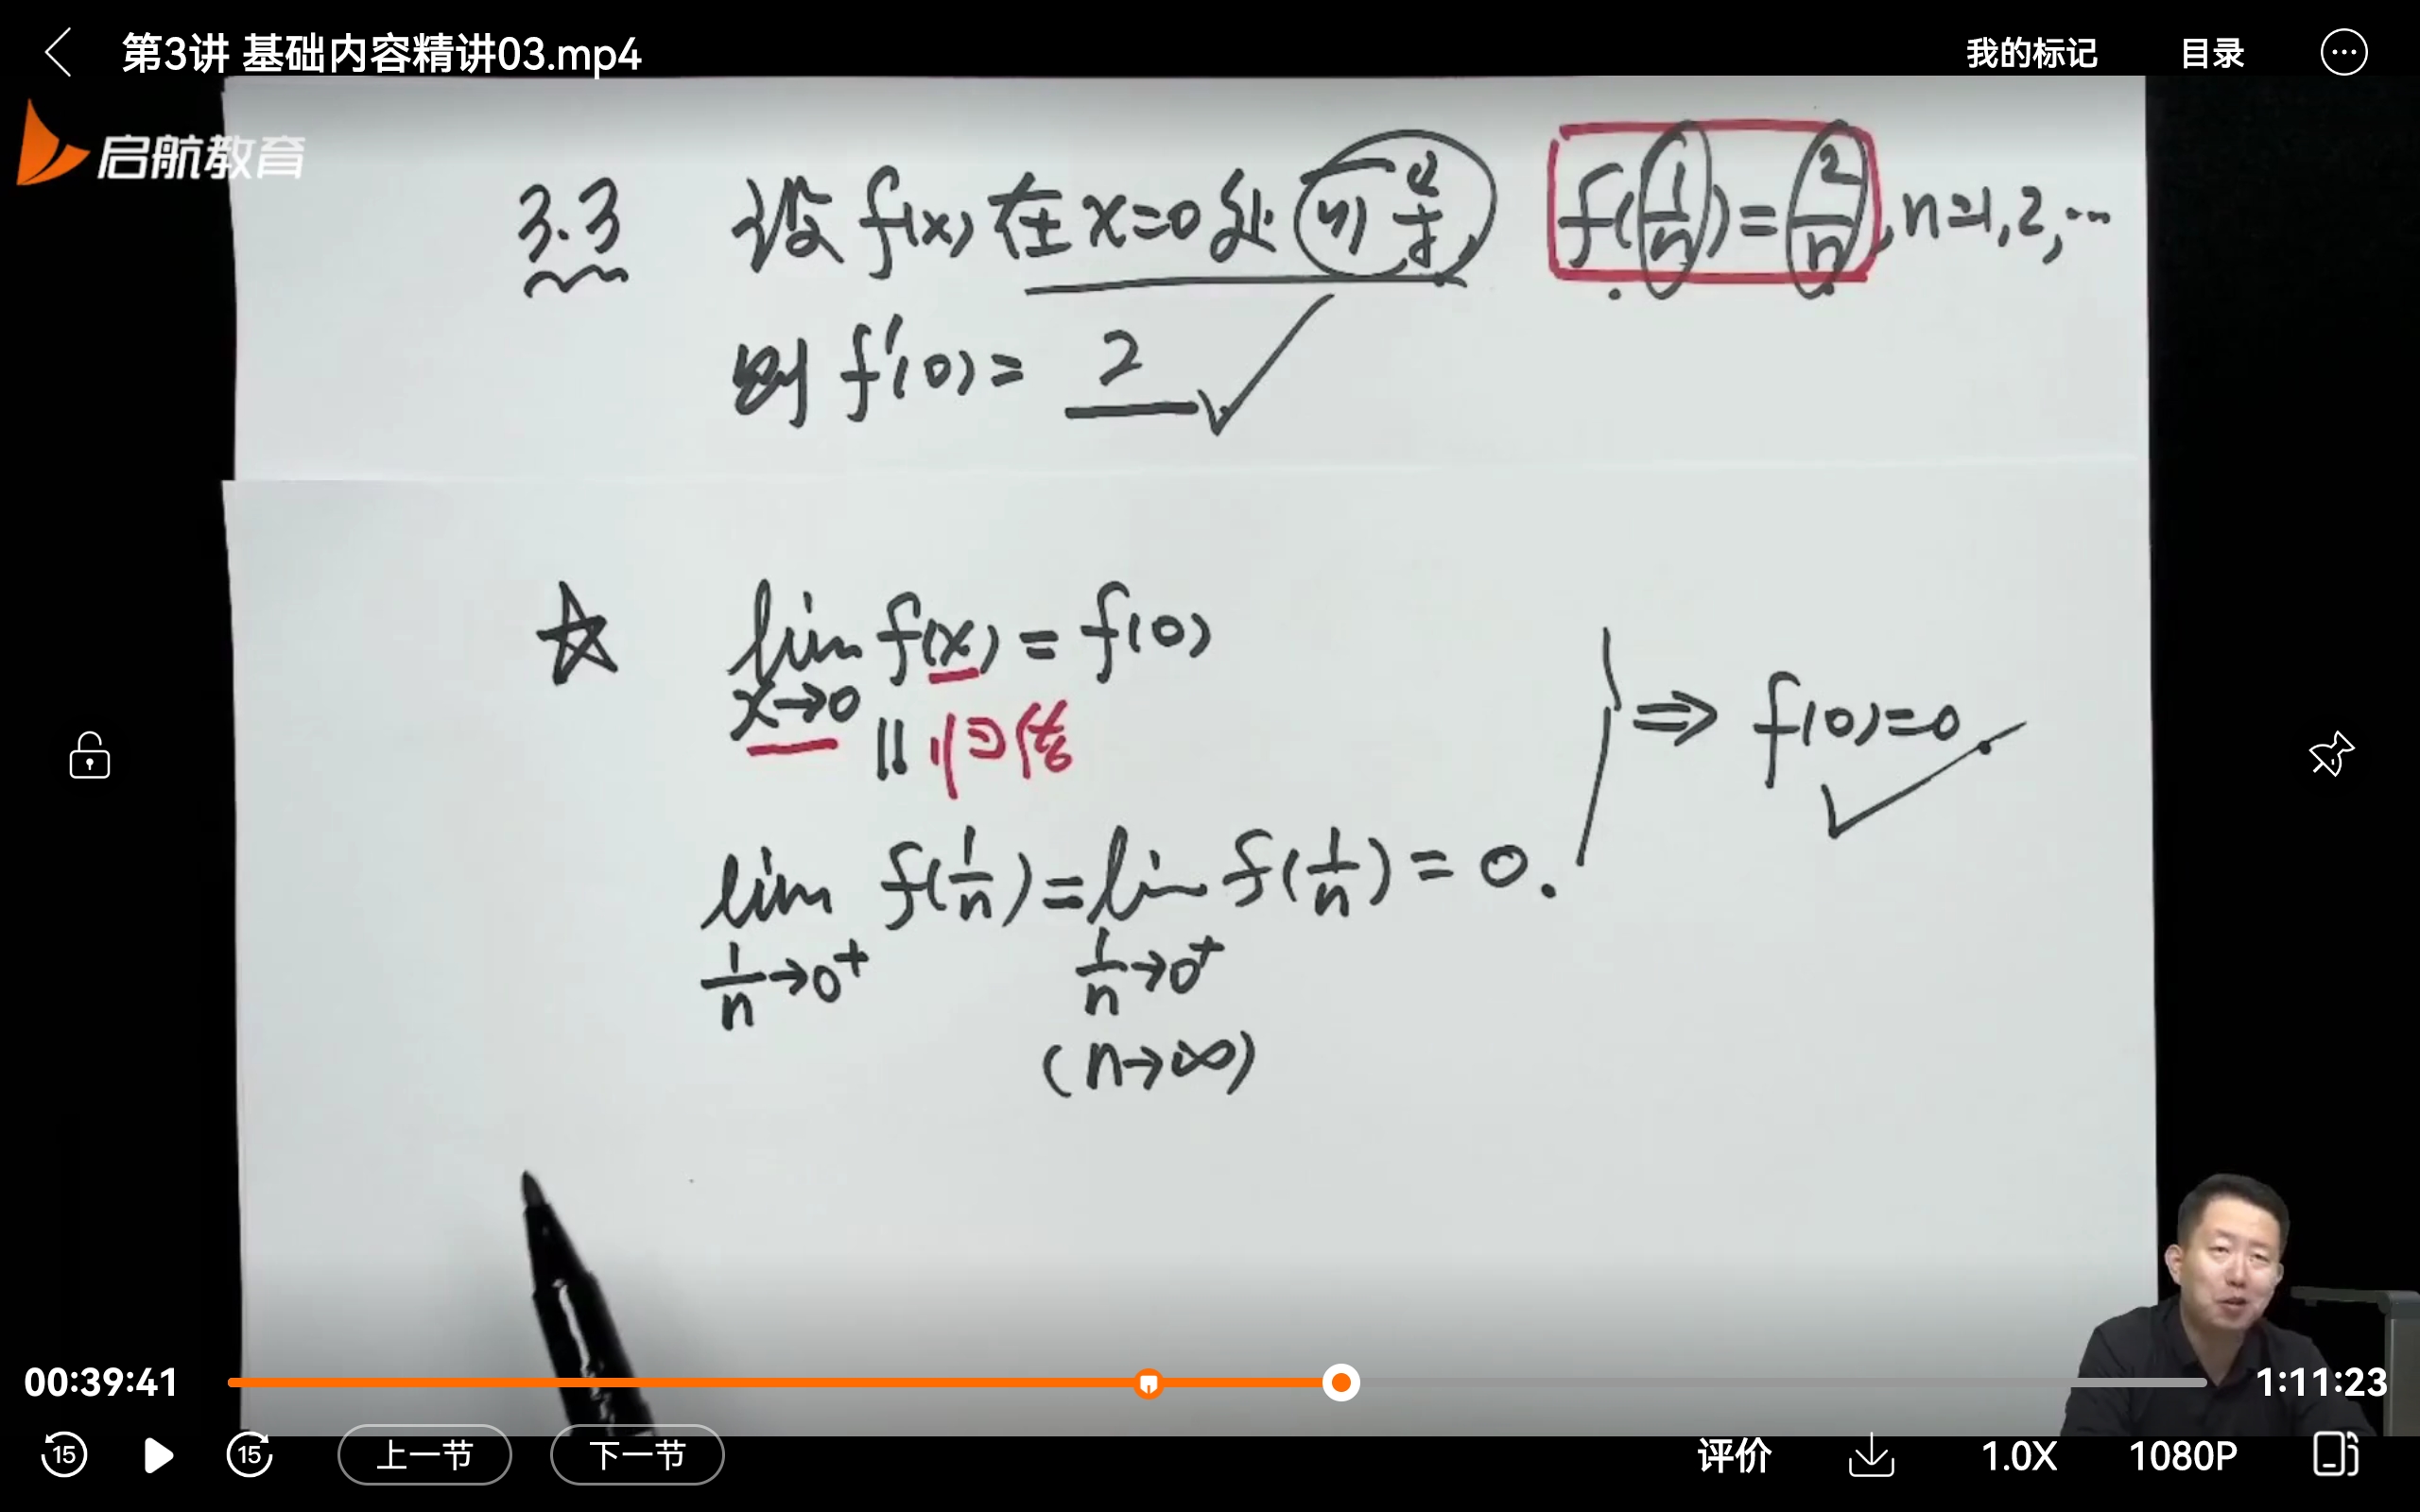 第3讲 基础内容精讲03.mp4
我的标记 目录
启航教育
3.3 设 f(x) 在 x=0 处可导, f(1/n)=2/n, n=1,2,…
则 f'(0)= 2 ✓
☆ lim f(x) = f(0)
x→0 || 归结
⇒ f(0)=0.
lim f(1/n) = lim f(1/n) = 0.
1/n→0⁺ 1/n→0⁺
(n→∞)
00:39:41 1:11:23
15 15 上一节 下一节 评价 1.0X 1080P